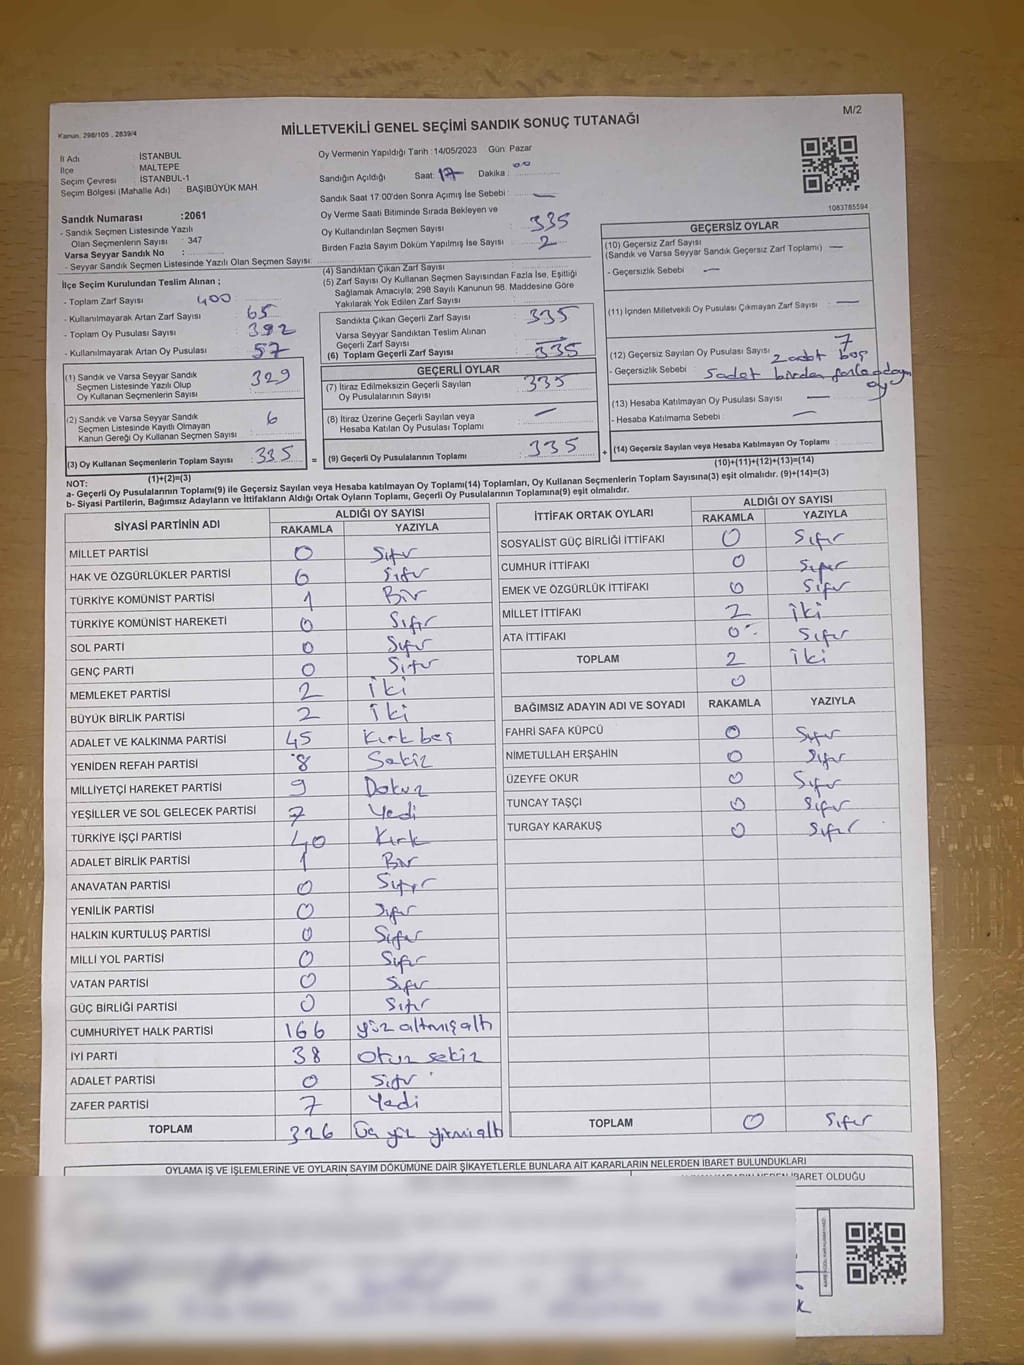 Kanun. 298/105 , 2839/4
MİLLETVEKİLİ GENEL SEÇİMİ SANDIK SONUÇ TUTANAĞI
M/2
İl Adı İSTANBUL
İlçe MALTEPE
Seçim Çevresi İSTANBUL-1
Seçim Bölgesi (Mahalle Adı) : BAŞIBÜYÜK MAH
Sandık Numarası :2061
- Sandık Seçmen Listesinde Yazılı
Olan Seçmenlerin Sayısı : 347
Varsa Seyyar Sandık No :
- Seyyar Sandık Seçmen Listesinde Yazılı Olan Seçmen Sayısı:
Oy Vermenin Yapıldığı Tarih :14/05/2023 Gün: Pazar
Sandığın Açıldığı Saat: 17 Dakika : 00
Sandık Saat 17:00'den Sonra Açımış İse Sebebi : —
Oy Verme Saati Bitiminde Sırada Bekleyen ve
Oy Kullandırılan Seçmen Sayısı : 335
Birden Fazla Sayım Döküm Yapılmış İse Sayısı : 2
1083785594
İlçe Seçim Kurulundan Teslim Alınan ;
- Toplam Zarf Sayısı : 400
- Kullanılmayarak Artan Zarf Sayısı : 65
- Toplam Oy Pusulası Sayısı : 392
- Kullanılmayarak Artan Oy Pusulası : 57
(1) Sandık ve Varsa Seyyar Sandık
Seçmen Listesinde Yazılı Olup
Oy Kullanan Seçmenlerin Sayısı : 329
(2) Sandık ve Varsa Seyyar Sandık
Seçmen Listesinde Kayıtlı Olmayan
Kanun Gereği Oy Kullanan Seçmen Sayısı : 6
(3) Oy Kullanan Seçmenlerin Toplam Sayısı : 335
(1)+(2)=(3)
(4) Sandıktan Çıkan Zarf Sayısı :
(5) Zarf Sayısı Oy Kullanan Seçmen Sayısından Fazla İse, Eşitliği
Sağlamak Amacıyla; 298 Sayılı Kanunun 98. Maddesine Göre
Yakılarak Yok Edilen Zarf Sayısı :
Sandıkta Çıkan Geçerli Zarf Sayısı : 335
Varsa Seyyar Sandıktan Teslim Alınan
Geçerli Zarf Sayısı : —
(6) Toplam Geçerli Zarf Sayısı : 335
GEÇERLİ OYLAR
(7) İtiraz Edilmeksizin Geçerli Sayılan
Oy Pusulalarının Sayısı : 335
(8) İtiraz Üzerine Geçerli Sayılan veya
Hesaba Katılan Oy Pusulası Toplamı : —
= (9) Geçerli Oy Pusulalarının Toplamı : 335 +
GEÇERSİZ OYLAR
(10) Geçersiz Zarf Sayısı
(Sandık ve Varsa Seyyar Sandık Geçersiz Zarf Toplamı) : —
- Geçersizlik Sebebi : —
(11) İçinden Milletvekili Oy Pusulası Çıkmayan Zarf Sayısı : —
(12) Geçersiz Sayılan Oy Pusulası Sayısı : 7
- Geçersizlik Sebebi : 2 adet boş
5 adet birden fazla
oy
(13) Hesaba Katılmayan Oy Pusulası Sayısı : —
- Hesaba Katılmama Sebebi : —
(14) Geçersiz Sayılan veya Hesaba Katılmayan Oy Toplamı :
(10)+(11)+(12)+(13)=(14)
NOT:
a- Geçerli Oy Pusulalarının Toplamı(9) ile Geçersiz Sayılan veya Hesaba katılmayan Oy Toplamı(14) Toplamları, Oy Kullanan Seçmenlerin Toplam Sayısına(3) eşit olmalıdır. (9)+(14)=(3)
b- Siyasi Partilerin, Bağımsız Adayların ve İttifakların Aldığı Ortak Oyların Toplamı, Geçerli Oy Pusulalarının Toplamına(9) eşit olmalıdır.
SİYASİ PARTİNİN ADI ALDIĞI OY SAYISI
RAKAMLA YAZIYLA
MİLLET PARTİSİ 0 Sıfır
HAK VE ÖZGÜRLÜKLER PARTİSİ 0 Sıfır
TÜRKİYE KOMÜNİST PARTİSİ 1 Bir
TÜRKİYE KOMÜNİST HAREKETİ 0 Sıfır
SOL PARTİ 0 Sıfır
GENÇ PARTİ 0 Sıfır
MEMLEKET PARTİSİ 2 İki
BÜYÜK BİRLİK PARTİSİ 2 İki
ADALET VE KALKINMA PARTİSİ 45 Kırk beş
YENİDEN REFAH PARTİSİ 8 Sekiz
MİLLİYETÇİ HAREKET PARTİSİ 9 Dokuz
YEŞİLLER VE SOL GELECEK PARTİSİ 7 Yedi
TÜRKİYE İŞÇİ PARTİSİ 40 Kırk
ADALET BİRLİK PARTİSİ 1 Bir
ANAVATAN PARTİSİ 0 Sıfır
YENİLİK PARTİSİ 0 Sıfır
HALKIN KURTULUŞ PARTİSİ 0 Sıfır
MİLLİ YOL PARTİSİ 0 Sıfır
VATAN PARTİSİ 0 Sıfır
GÜÇ BİRLİĞİ PARTİSİ 0 Sıfır
CUMHURİYET HALK PARTİSİ 166 yüz altmış altı
İYİ PARTİ 38 Otuz sekiz
ADALET PARTİSİ 0 Sıfır
ZAFER PARTİSİ 7 Yedi
TOPLAM 326 Üç yüz yirmi altı
İTTİFAK ORTAK OYLARI ALDIĞI OY SAYISI
RAKAMLA YAZIYLA
SOSYALİST GÜÇ BİRLİĞİ İTTİFAKI 0 Sıfır
CUMHUR İTTİFAKI 0 Sıfır
EMEK VE ÖZGÜRLÜK İTTİFAKI 0 Sıfır
MİLLET İTTİFAKI 2 İki
ATA İTTİFAKI 0 Sıfır
TOPLAM 2 İki
0
BAĞIMSIZ ADAYIN ADI VE SOYADI RAKAMLA YAZIYLA
FAHRİ SAFA KÜPCÜ 0 Sıfır
NİMETULLAH ERŞAHİN 0 Sıfır
ÜZEYFE OKUR 0 Sıfır
TUNCAY TAŞÇI 0 Sıfır
TURGAY KARAKUŞ 0 Sıfır
TOPLAM 0 Sıfır
OYLAMA İŞ VE İŞLEMLERİNE VE OYLARIN SAYIM DÖKÜMÜNE DAİR ŞİKAYETLERLE BUNLARA AİT KARARLARIN NELERDEN İBARET BULUNDUKLARI
İBARET OLDUĞU